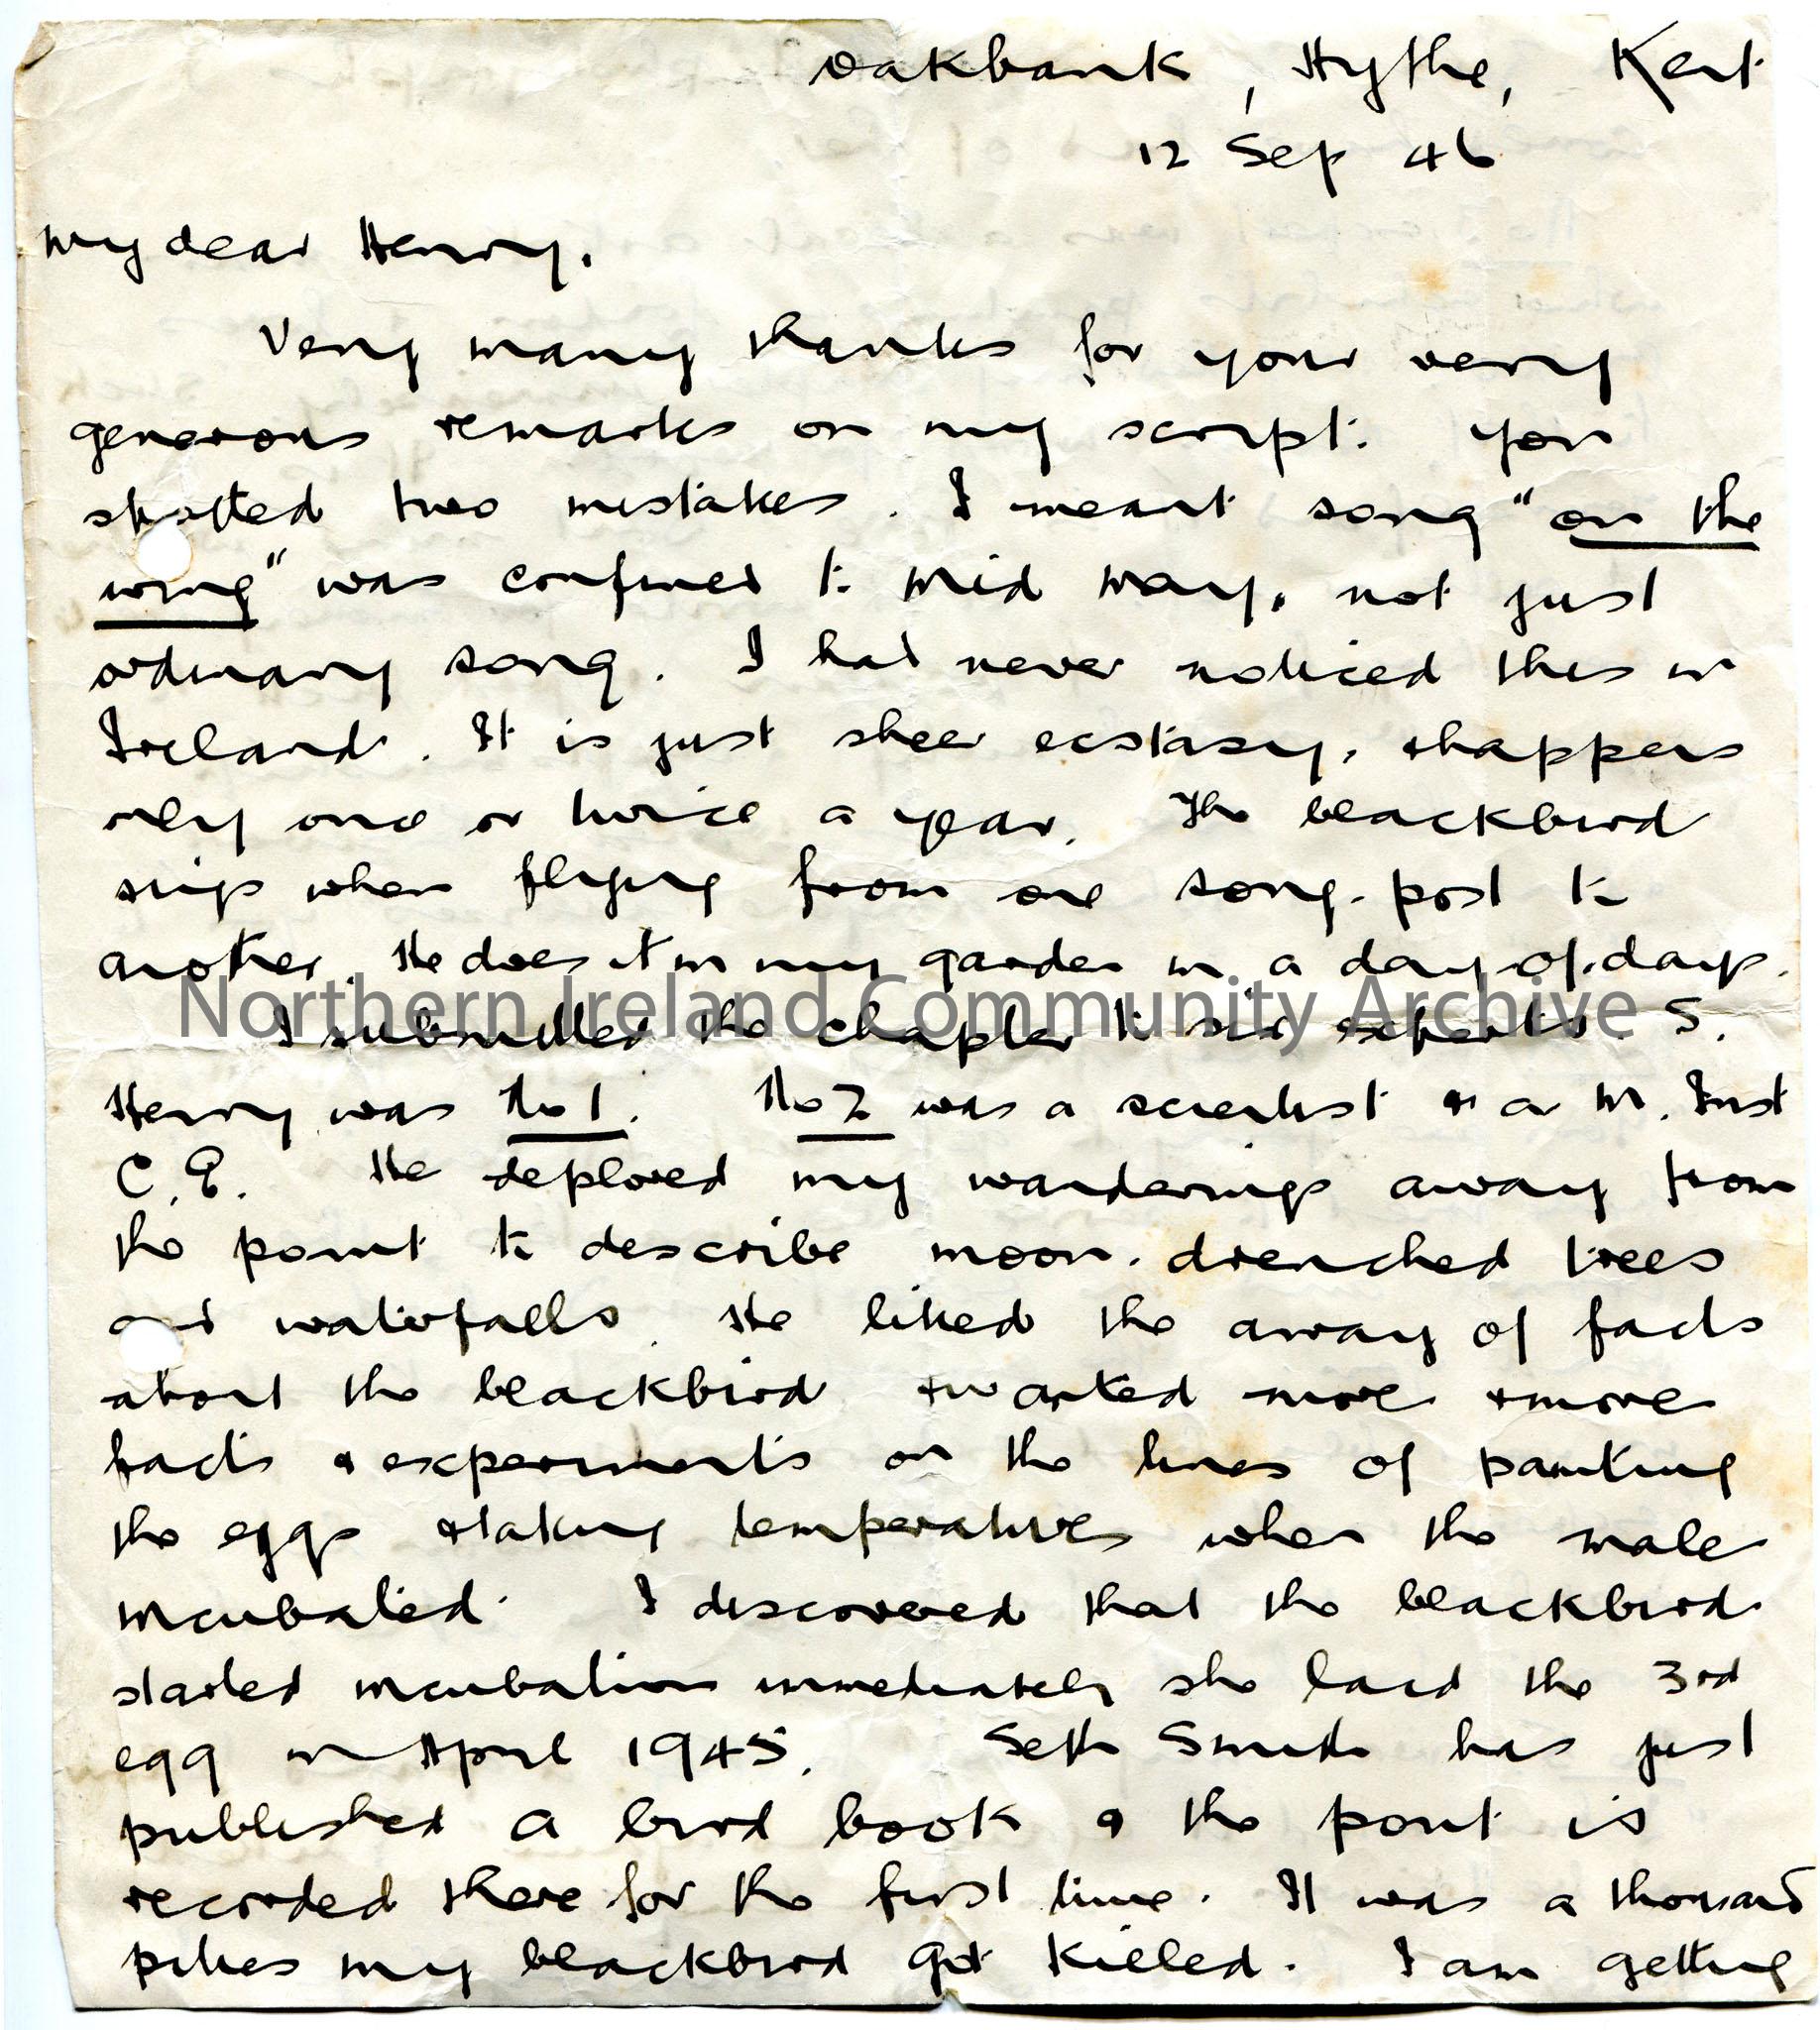 Oakbank, Hythe, Kent
12 Sep 46
My dear Henry,
Very many thanks for your very
generous remarks on my script. You
spotted two mistakes. I meant song "on the
wing" was confined to Mid May, not just
ordinary song. I had never noticed this in
Ireland. It is just sheer ecstasy, & happens
only once or twice a year. The blackbird
sings when flying from one song-post to
another. He does it in my garden in a day-of-days.
Northern Ireland Community Archive
I submitted the chapter to six experts. S.
Henry was No 1. No 2 was a scientist & a M. Inst
C.E. He deplored my wanderings away from
the point to describe moon-drenched trees
and waterfalls. He liked the array of facts
about the blackbird & wanted more & more
facts & experiments on the lines of painting
the eggs & taking temperatures when the male
incubated. I discovered that the blackbird
started incubation immediately she laid the 3rd
egg in April 1945. Seth Smith has just
published a bird book & the point is
recorded there for the first time. It was a thousand
pities my blackbird got killed. I am getting